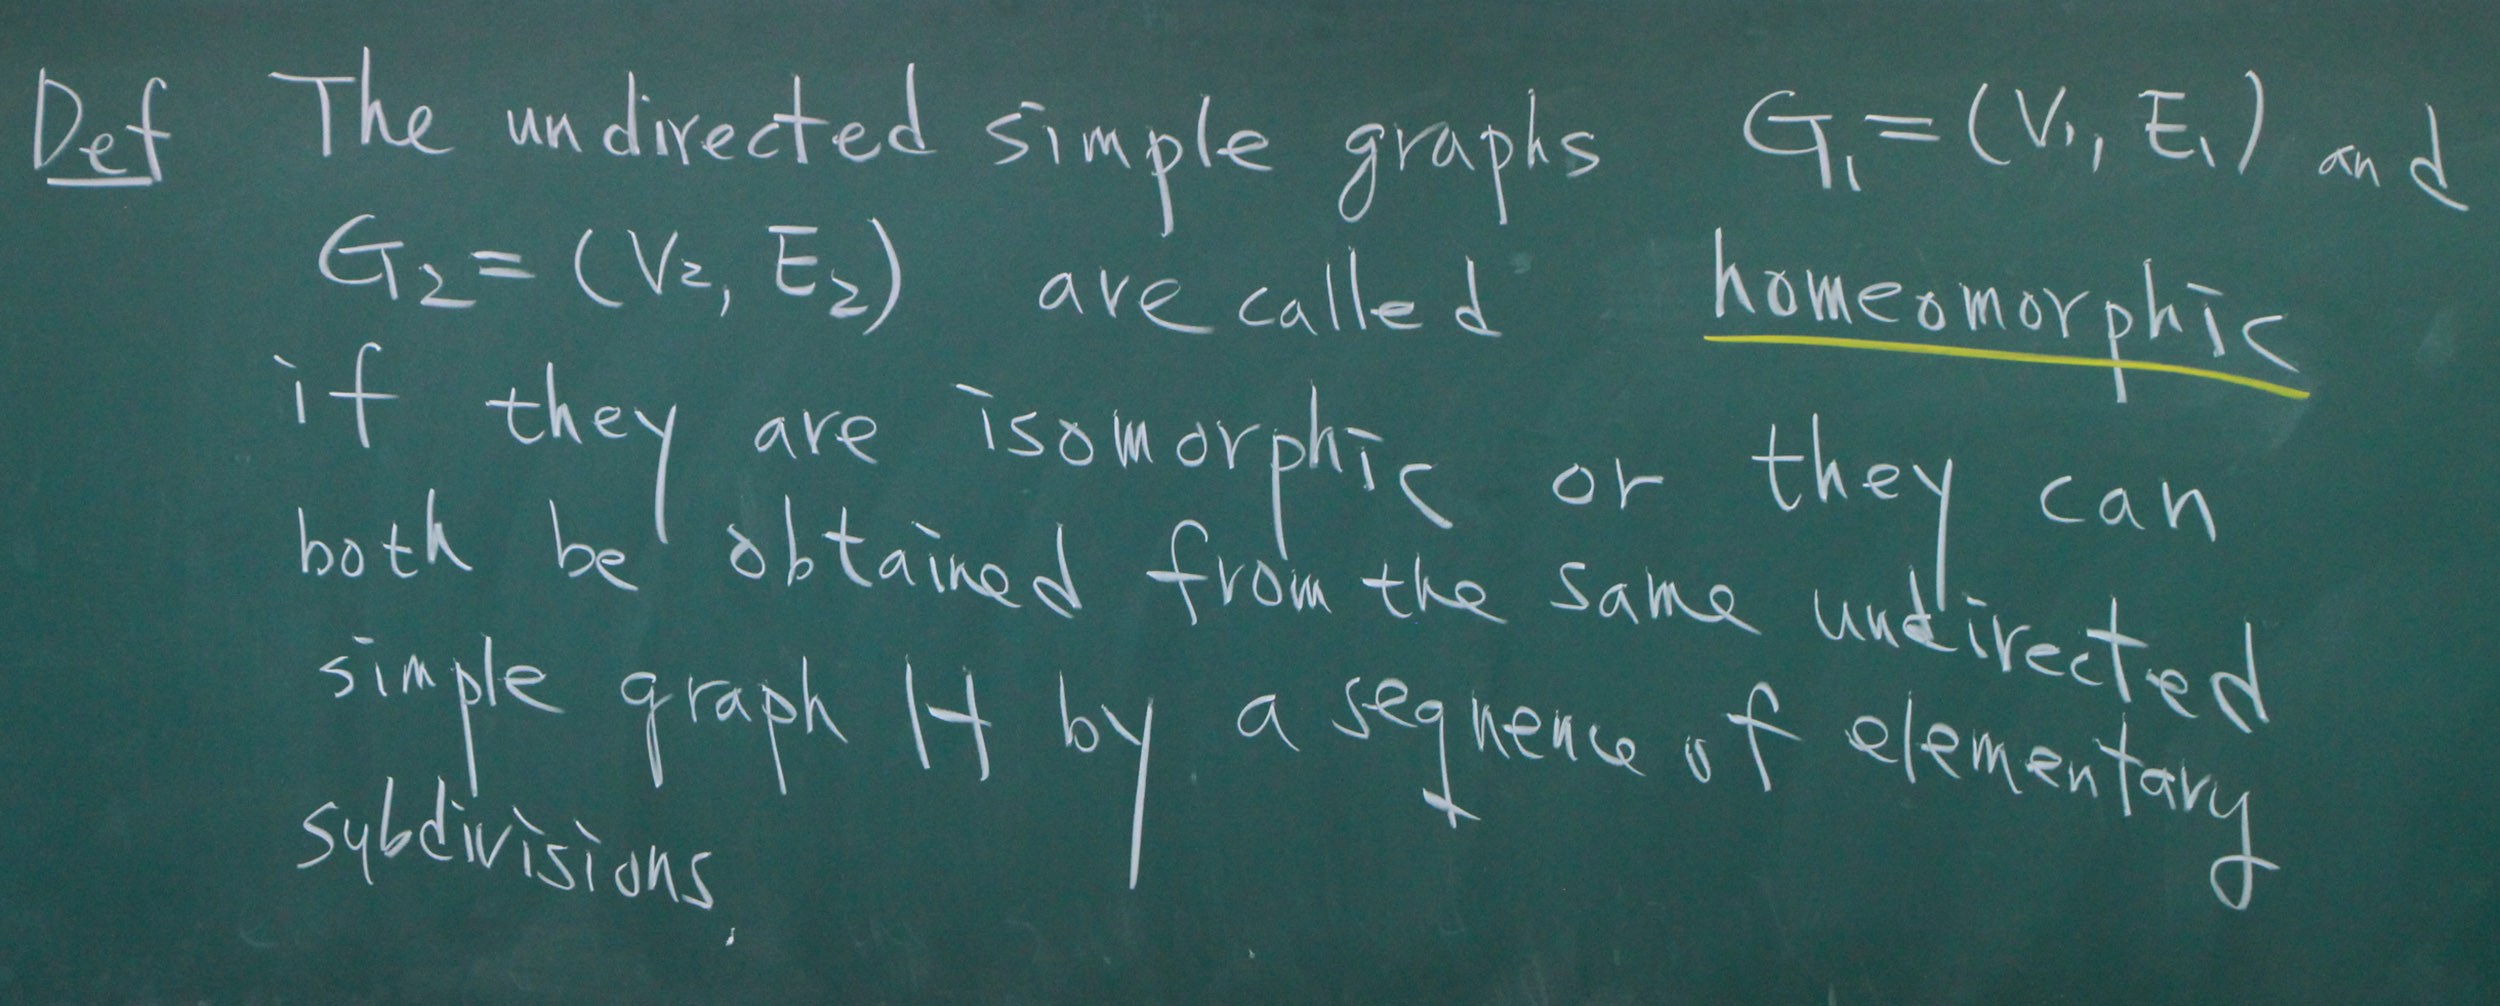 Def The undirected simple graphs G₁=(V₁, E₁) and
G₂=(V₂, E₂) are called homeomorphic
if they are isomorphic or they can
both be obtained from the same undirected
simple graph H by a sequence of elementary
subdivisions.